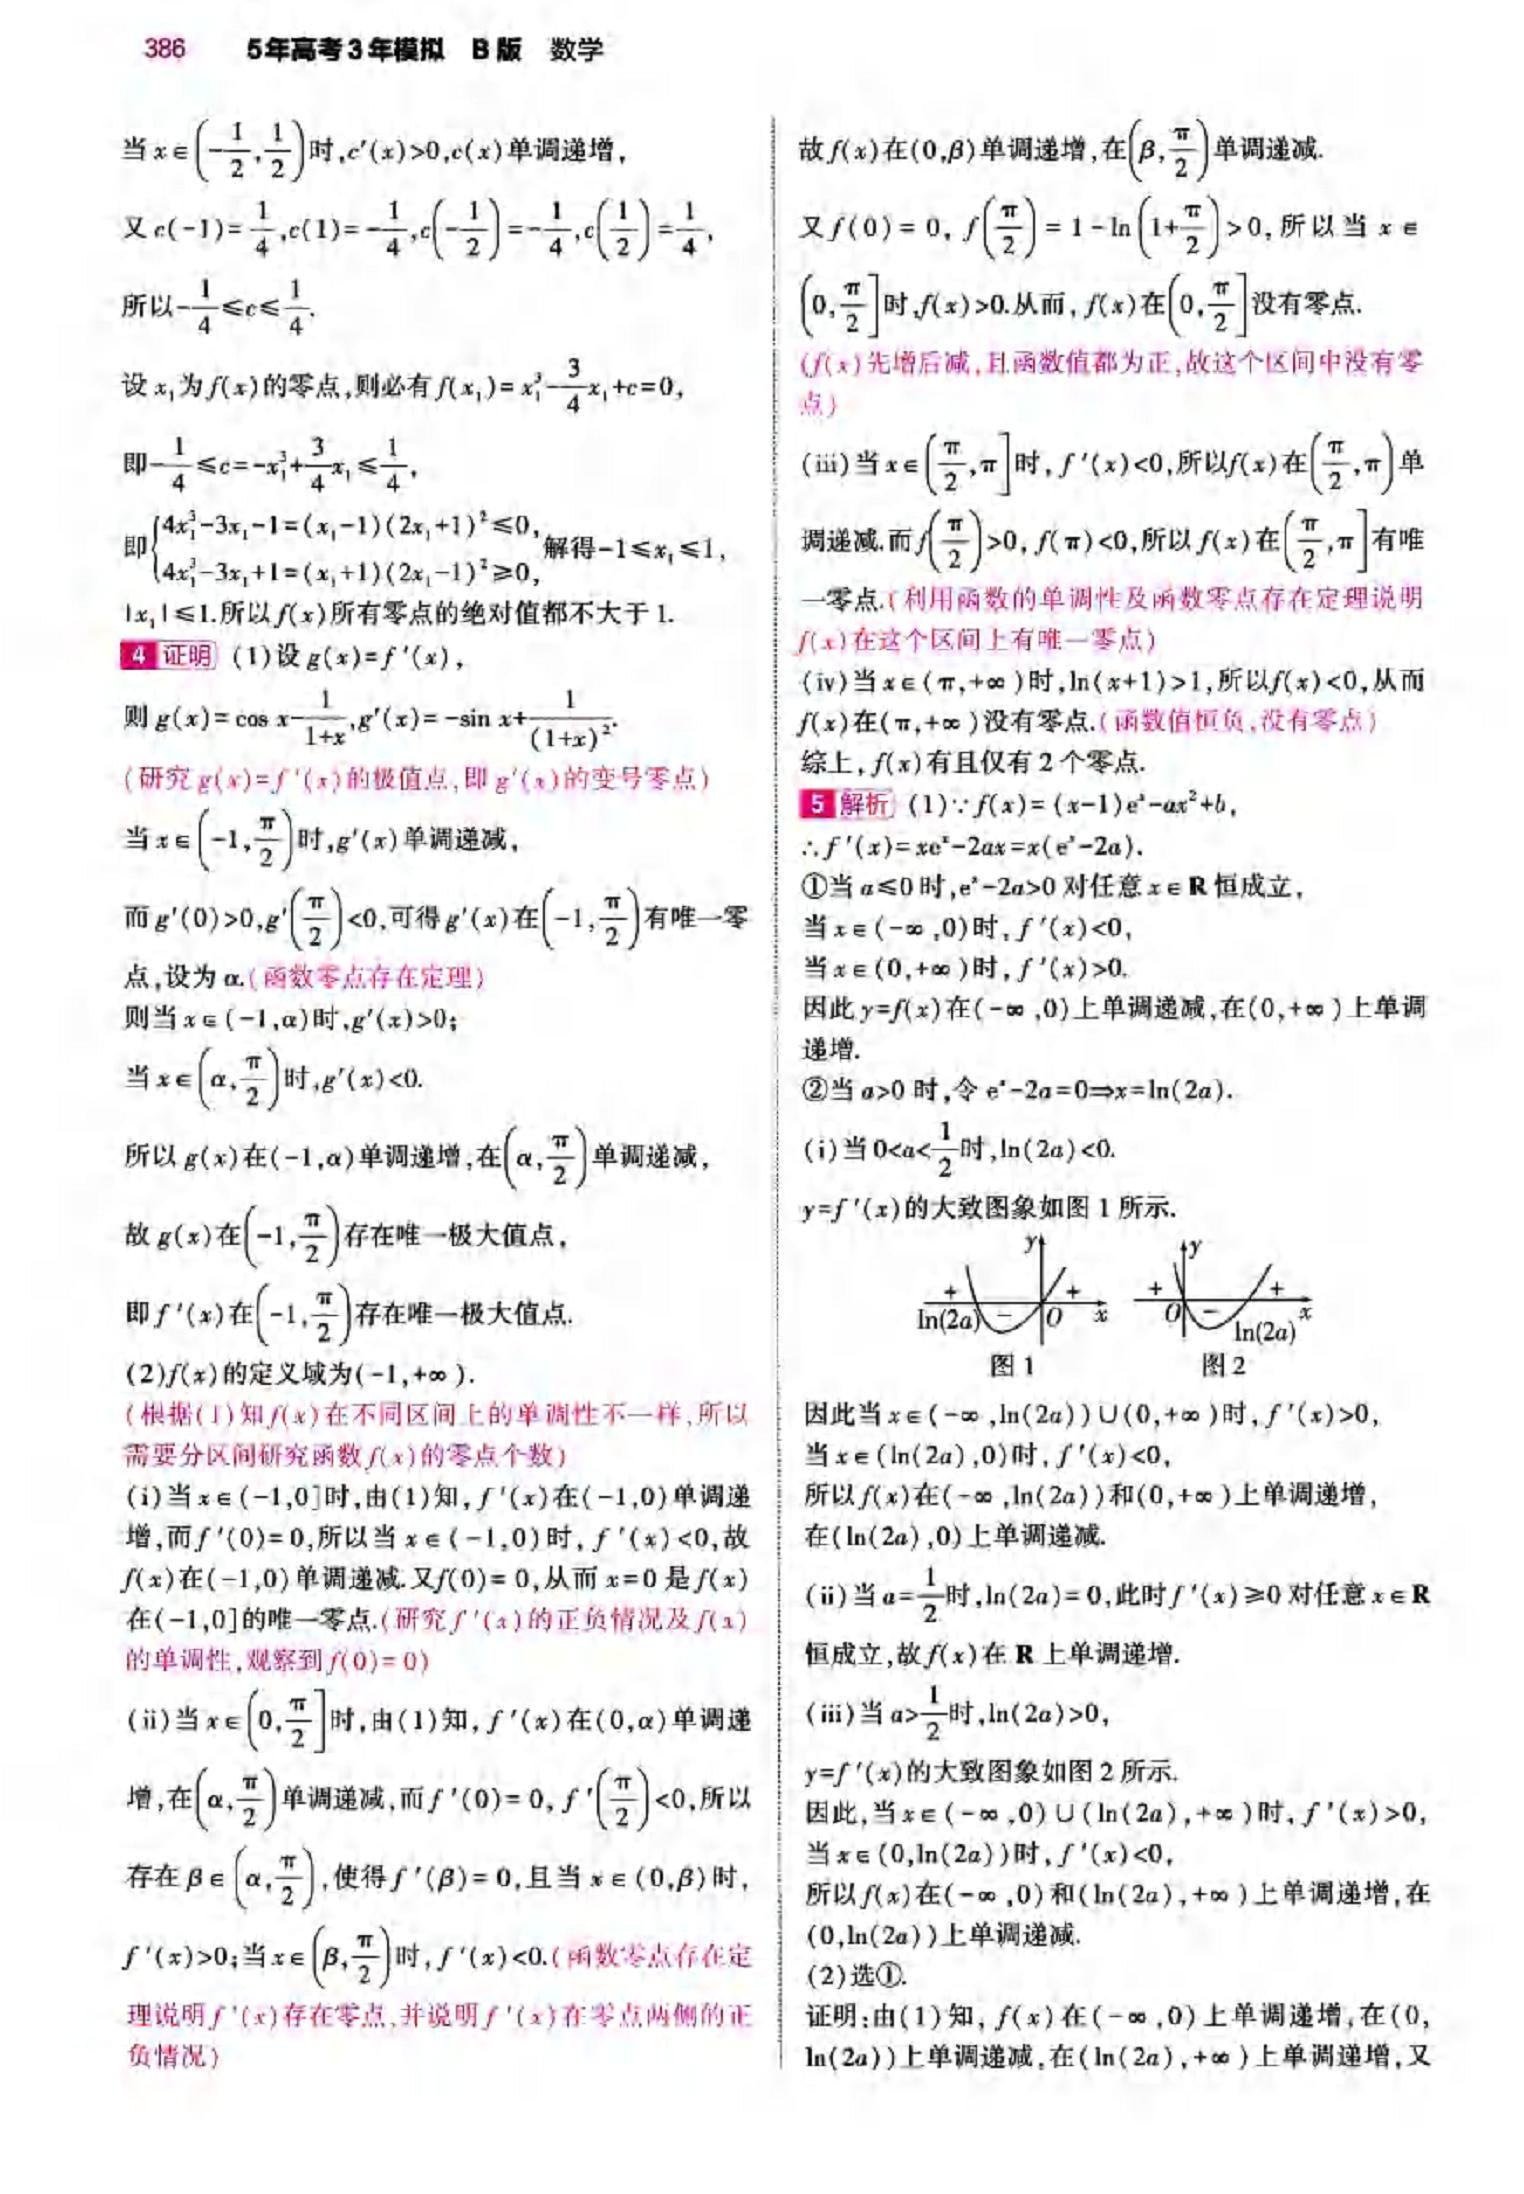 386 5年高考3年模拟 B版 数学
当x∈(-1/2,1/2)时,c′(x)>0,c(x)单调递增,
又c(-1)=1/4,c(1)=-1/4,c(-1/2)=-1/4,c(1/2)=1/4,
所以-1/4≤c≤1/4.
设x₁为f(x)的零点,则必有f(x₁)=x₁³-3/4x₁+c=0,
即-1/4≤c=-x₁³+3/4x₁≤1/4,
即{4x₁³-3x₁-1=(x₁-1)(2x₁+1)²≤0,
4x₁³-3x₁+1=(x₁+1)(2x₁-1)²≥0, 解得-1≤x₁≤1,
|x₁|≤1.所以f(x)所有零点的绝对值都不大于1.
4 证明 (1)设g(x)=f′(x),
则g(x)=cos x-1/(1+x),g′(x)=-sin x+1/(1+x)².
(研究g(x)=f′(x)的极值点,即g′(x)的变号零点)
当x∈(-1,π/2)时,g′(x)单调递减,
而g′(0)>0,g′(π/2)<0,可得g′(x)在(-1,π/2)有唯一零
点,设为α.(函数零点存在定理)
则当x∈(-1,α)时,g′(x)>0;
当x∈(α,π/2)时,g′(x)<0.
所以g(x)在(-1,α)单调递增,在(α,π/2)单调递减,
故g(x)在(-1,π/2)存在唯一极大值点,
即f′(x)在(-1,π/2)存在唯一极大值点.
(2)f(x)的定义域为(-1,+∞).
(根据(1)知f(x)在不同区间上的单调性不一样,所以
需要分区间研究函数f(x)的零点个数)
(i)当x∈(-1,0]时,由(1)知,f′(x)在(-1,0)单调递
增,而f′(0)=0,所以当x∈(-1,0)时,f′(x)<0,故
f(x)在(-1,0)单调递减.又f(0)=0,从而x=0是f(x)
在(-1,0]的唯一零点.(研究f′(x)的正负情况及f(x)
的单调性,观察到f(0)=0)
(ii)当x∈(0,π/2]时,由(1)知,f′(x)在(0,α)单调递
增,在(α,π/2)单调递减,而f′(0)=0,f′(π/2)<0,所以
存在β∈(α,π/2),使得f′(β)=0,且当x∈(0,β)时,
f′(x)>0;当x∈(β,π/2)时,f′(x)<0.(函数零点存在定
理说明f′(x)存在零点,并说明f′(x)在零点两侧的正
负情况)
故f(x)在(0,β)单调递增,在(β,π/2)单调递减.
又f(0)=0,f(π/2)=1-ln(1+π/2)>0,所以当x∈
(0,π/2]时,f(x)>0.从而,f(x)在(0,π/2]没有零点.
(f(x)先增后减,且函数值都为正,故这个区间中没有零
点)
(iii)当x∈(π/2,π]时,f′(x)<0,所以f(x)在(π/2,π)单
调递减.而f(π/2)>0,f(π)<0,所以f(x)在(π/2,π]有唯
一零点.(利用函数的单调性及函数零点存在定理说明
f(x)在这个区间上有唯一零点)
(iv)当x∈(π,+∞)时,ln(x+1)>1,所以f(x)<0,从而
f(x)在(π,+∞)没有零点.(函数值恒负,没有零点)
综上,f(x)有且仅有2个零点.
5 解析 (1)∵f(x)=(x-1)eˣ-ax²+b,
∴f′(x)=xeˣ-2ax=x(eˣ-2a).
①当a≤0时,eˣ-2a>0对任意x∈R恒成立,
当x∈(-∞,0)时,f′(x)<0,
当x∈(0,+∞)时,f′(x)>0.
因此y=f(x)在(-∞,0)上单调递减,在(0,+∞)上单调
递增.
②当a>0时,令eˣ-2a=0⇒x=ln(2a).
(i)当0<a<1/2时,ln(2a)<0.
y=f′(x)的大致图象如图1所示.
y y
+ + + +
ln(2a) - O x O - ln(2a) x
图1 图2
因此当x∈(-∞,ln(2a))∪(0,+∞)时,f′(x)>0,
当x∈(ln(2a),0)时,f′(x)<0,
所以f(x)在(-∞,ln(2a))和(0,+∞)上单调递增,
在(ln(2a),0)上单调递减.
(ii)当a=1/2时,ln(2a)=0,此时f′(x)≥0对任意x∈R
恒成立,故f(x)在R上单调递增.
(iii)当a>1/2时,ln(2a)>0,
y=f′(x)的大致图象如图2所示.
因此,当x∈(-∞,0)∪(ln(2a),+∞)时,f′(x)>0,
当x∈(0,ln(2a))时,f′(x)<0,
所以f(x)在(-∞,0)和(ln(2a),+∞)上单调递增,在
(0,ln(2a))上单调递减.
(2)选①.
证明:由(1)知,f(x)在(-∞,0)上单调递增,在(0,
ln(2a))上单调递减,在(ln(2a),+∞)上单调递增,又